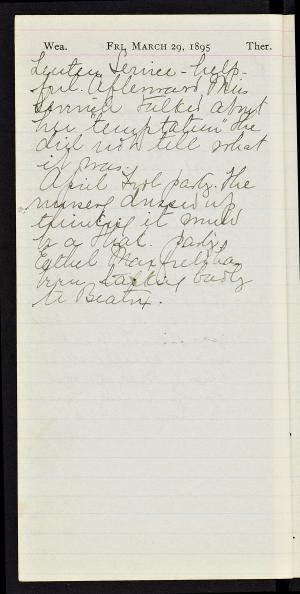 Wea. FRI, MARCH 29, 1895 Ther.
Lenten Service - help-
ful. Afterward Miss
talked about
her "temptation" She
did not tell what
it was.
April Fool party. The
nurses dressed up
thinking it would
be a party.
Ethel has
been talking badly
to Beatrix.